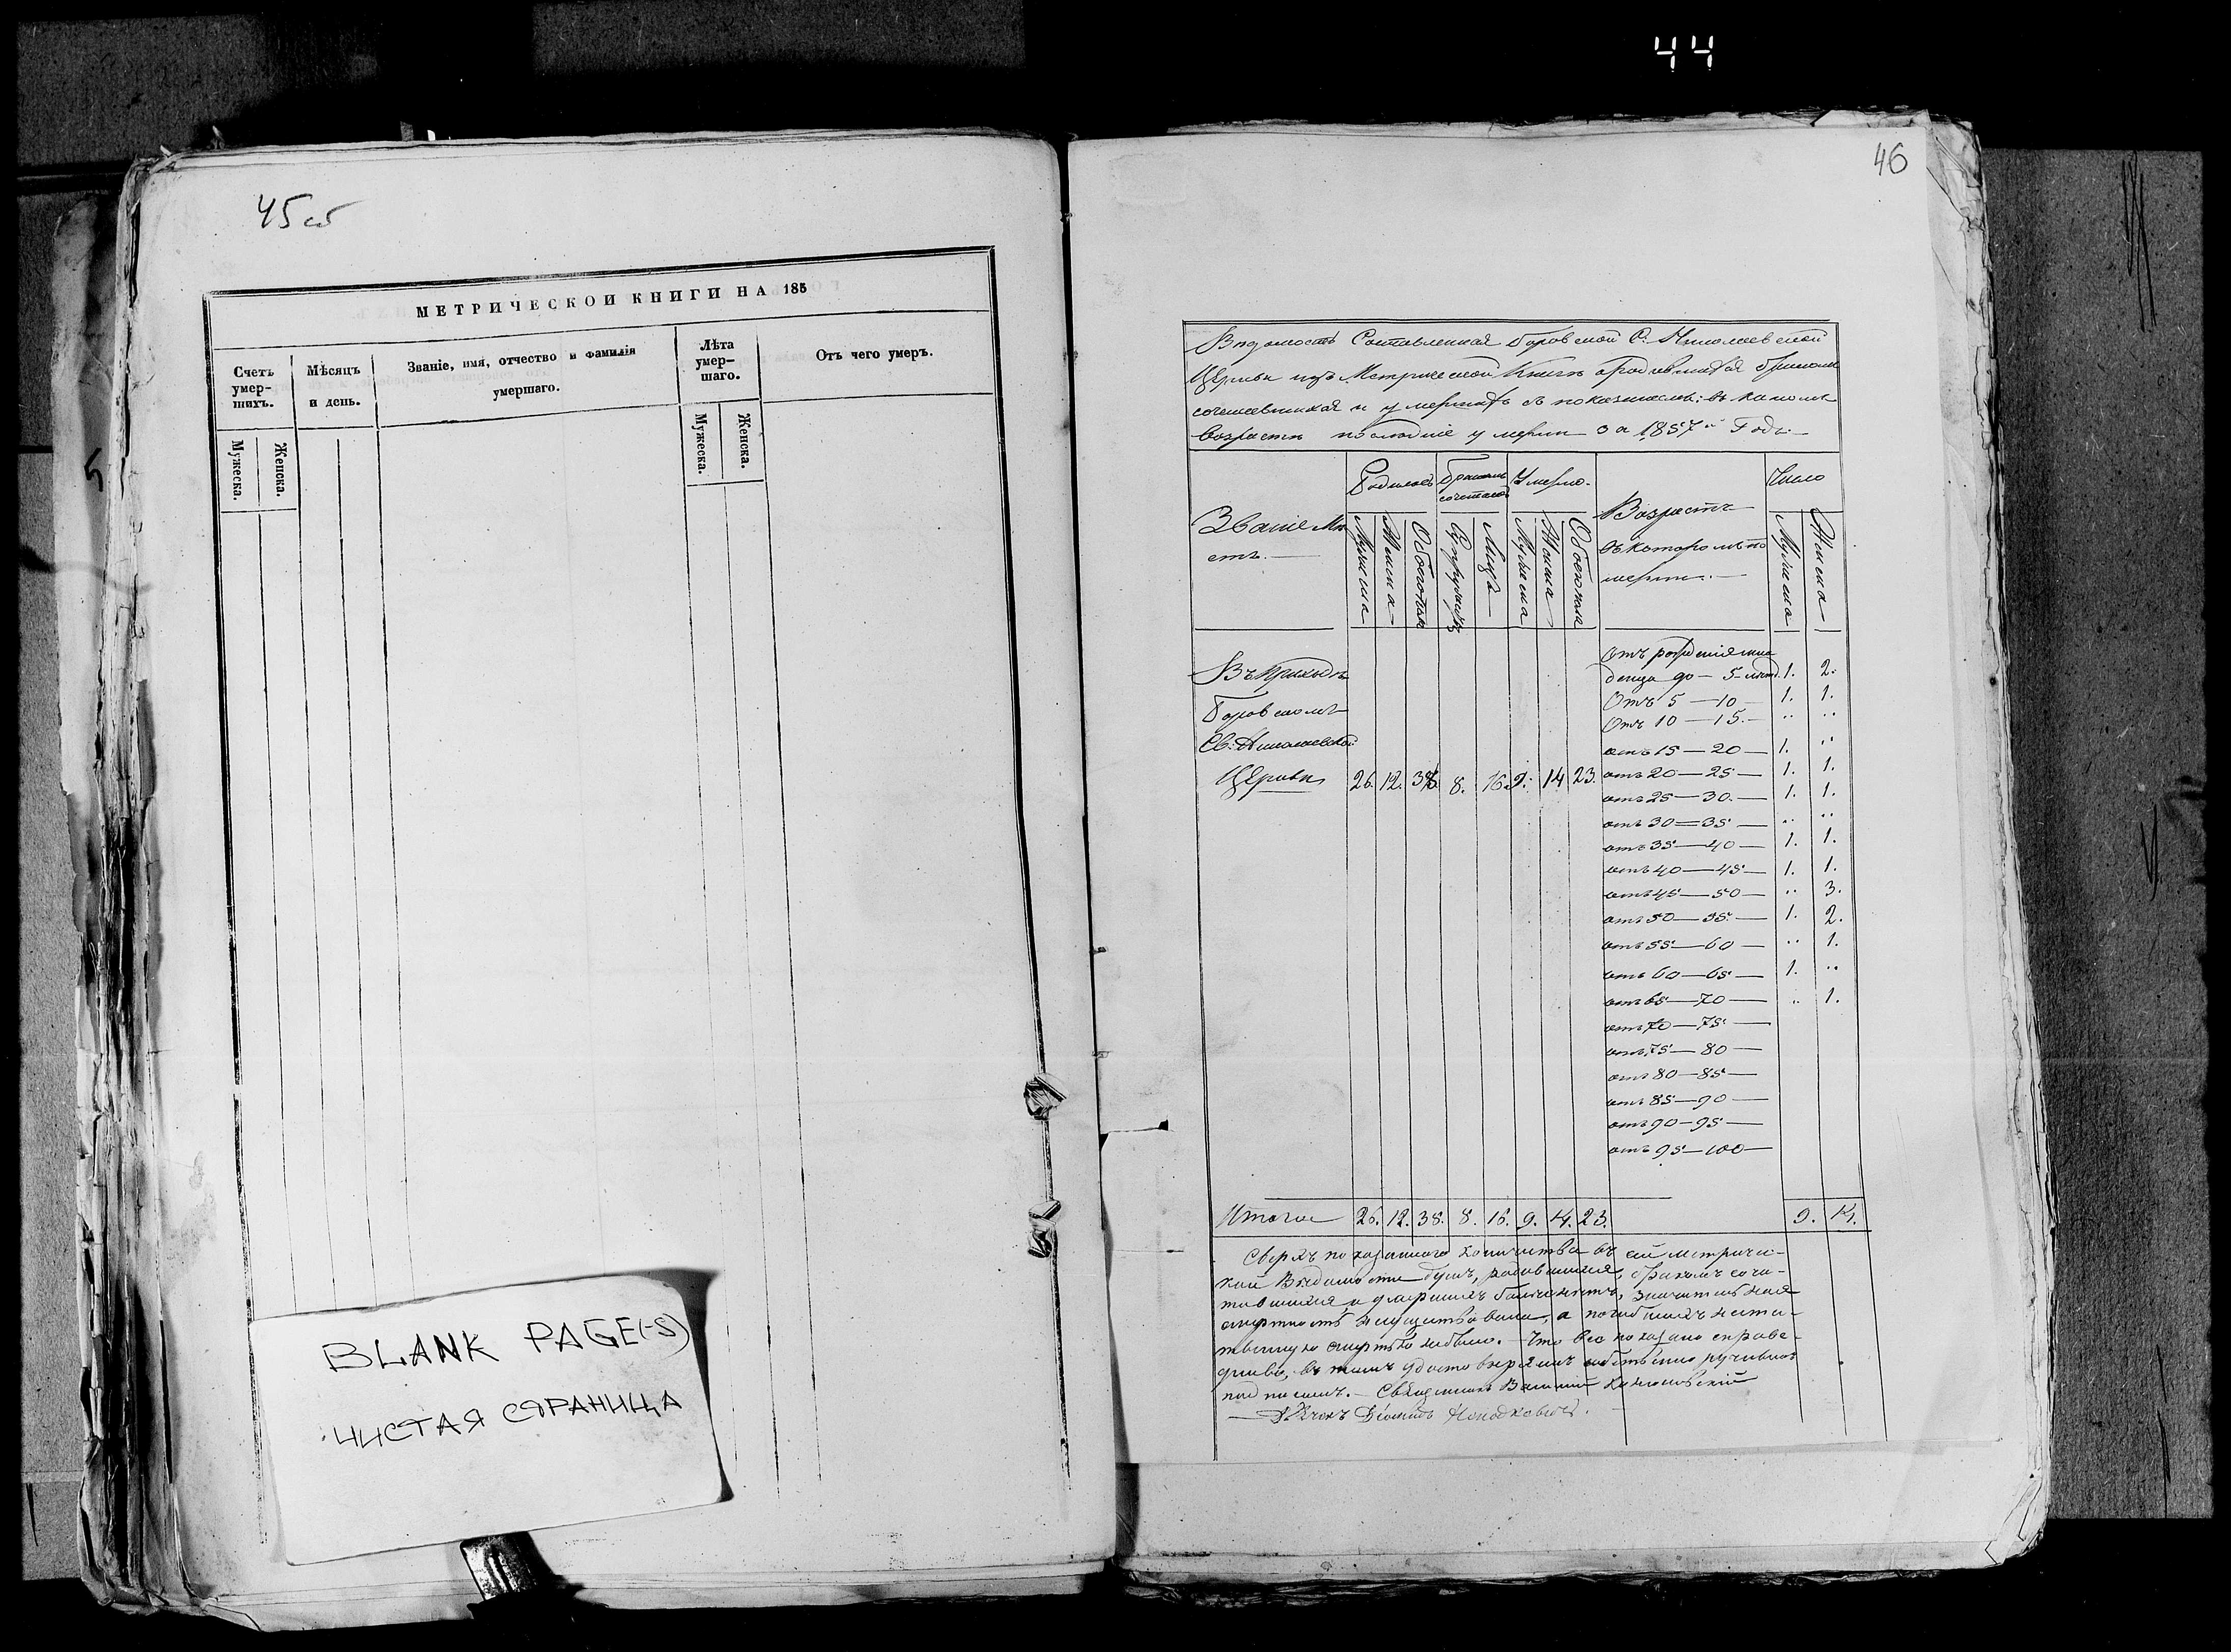 44
45об
МЕТРИЧЕСКОЙ КНИГИ НА 185
Счетъ умер- шихъ.
Мѣсяцъ и день.
Званіе, имя, отчество и фамилія умершаго.
Лѣта умер- шаго.
Отъ чего умеръ.
Мужеска. Женска.
Мужеска. Женска.
5
BLANK PAGE(-S)
ЧИСТАЯ СТРАНИЦА
46
Вѣдомость Составленная Боровской С. Николаевской
Церкви изъ Метрической Книги о родившихся бракомъ
сочетавшихся и умершихъ съ показаніемъ: въ какомъ
возрастѣ послѣдніе умерли за 1857й Годъ.
Званіе Мѣ- стъ.
Родилось
Бракомъ сочеталось
Умерло.
Возрастъ въ которомъ по мерли.
Число
Мужеска Женска Обоего пола
Супружествъ Лицъ
Мужеска Женска Обоего пола
Мужеска Женска
Въ Приходѣ
Боровской
Св: Николаевской
Церкви 26. 12. 38. 8. 16. 9. 14 23.
Отъ рожденія мла
денца до — 5 лѣтъ 1. 2.
Отъ 5 — 10 — 1. 1.
Отъ 10 — 15. — " "
отъ 15 — 20 — 1. "
отъ 20 — 25 — 1. 1.
отъ 25 — 30. — 1. 1.
отъ 30 — 35 — " "
отъ 35 — 40 — 1. 1.
отъ 40 — 45 — 1. 1.
отъ 45 — 50 — " 3.
отъ 50 — 55 — 1. 2.
отъ 55 — 60 — " 1.
отъ 60 — 65 — 1. "
отъ 65 — 70 — " 1.
отъ 70 — 75 —
отъ 75 — 80 —
отъ 80 — 85 —
отъ 85 — 90 —
отъ 90 — 95 —
отъ 95 — 100 —
Итого 26. 12. 38. 8. 16. 9. 14. 23. 9. 14.
Сверхъ показаннаго количества въ сей метричес-
кой Вѣдомости душъ, родившихся, бракомъ соче-
тавшихся и умершихъ больше нѣтъ, значительная
смертность не существовала, а погибшихъ неесте-
ственную смертью не было. — Что все показано справе-
дливо, въ томъ удостовѣряемъ собственноручною
подписью. — Священникъ
Дьячокъ